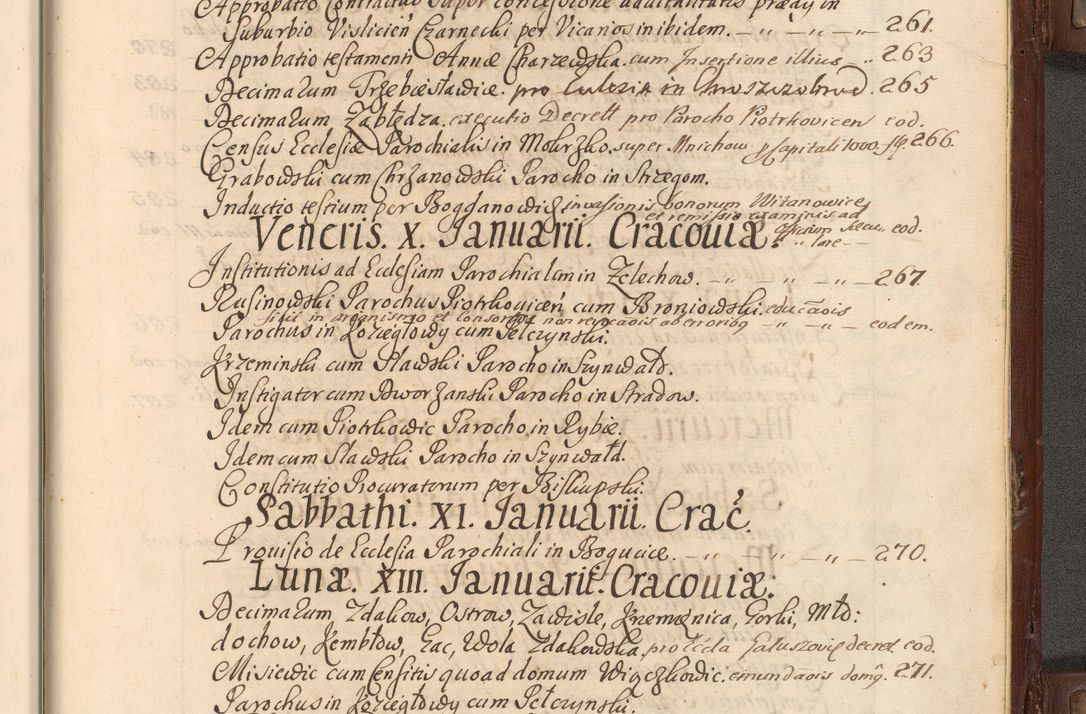 Approbatio Contractus super concessione advitalitatis prædij in
Suburbio Vislicień Czarnecki per Vicarios in ibidem. — „ — „ — „ — 261.
Approbatio testamenti Annæ Charzewska. cum Insertione illius — „ 263
Decimarum Trzebiestawice. pro Ecclesia in Mroszczobrod. 265
Decimarum Zabłędza. executio Decreti pro Parocho Piotrkovicen eod.
Census Ecclesiæ Parochialis in Mokrzko. super Mnichow p Capitali 1000. flp. 266.
Grabowski cum Chrzanowski Parocho in Strzegom.
Inductio testium per Bogdanowicz. invasionis bonorum Witanowice
et remissio examinis ad
Veneris. X. Januarii. Cracoviæ. officium Secu- eod.
„ lare —
Institutionis ad Ecclesiam Parochialem in Zelechow. — „ „ — „ — 267.
Rusinowski Parochus Piotrkovicen cum Broniowski.
non reparaõis aberroribq — „ — „ — eodem.
Parochus in Koziegłowy cum Pełczynski.
Krzeminski cum Sławski Parocho in Szynwałd.
Instigator cum Dworzanski Parocho in Stradow.
Idem cum Piotrkowic Parocho in Rybie.
Idem cum Sławski Parocho in Szynwałd.
Constitutio Procuratorum per Biskupski.
Sabbathi. XI. Januarii. Crac.
Provisio de Ecclesia Parochiali in Bogucice. — „ „ — „ — 270.
Lunæ. XIII. Januarii. Cracoviæ:
Decimarum, Zdakow, Ostrow, Zawisle, Krzemęnica, Gorki, Mło:
dochow, Kembłow, Gac, Wola Zdakowska, pro Eccla Gałuszovię decret eod.
Misiewic cum Censitis quoad domum Więczkowic. emundaõis domq. 271.
Parochus in Koziegłowy cum Pełczynski.